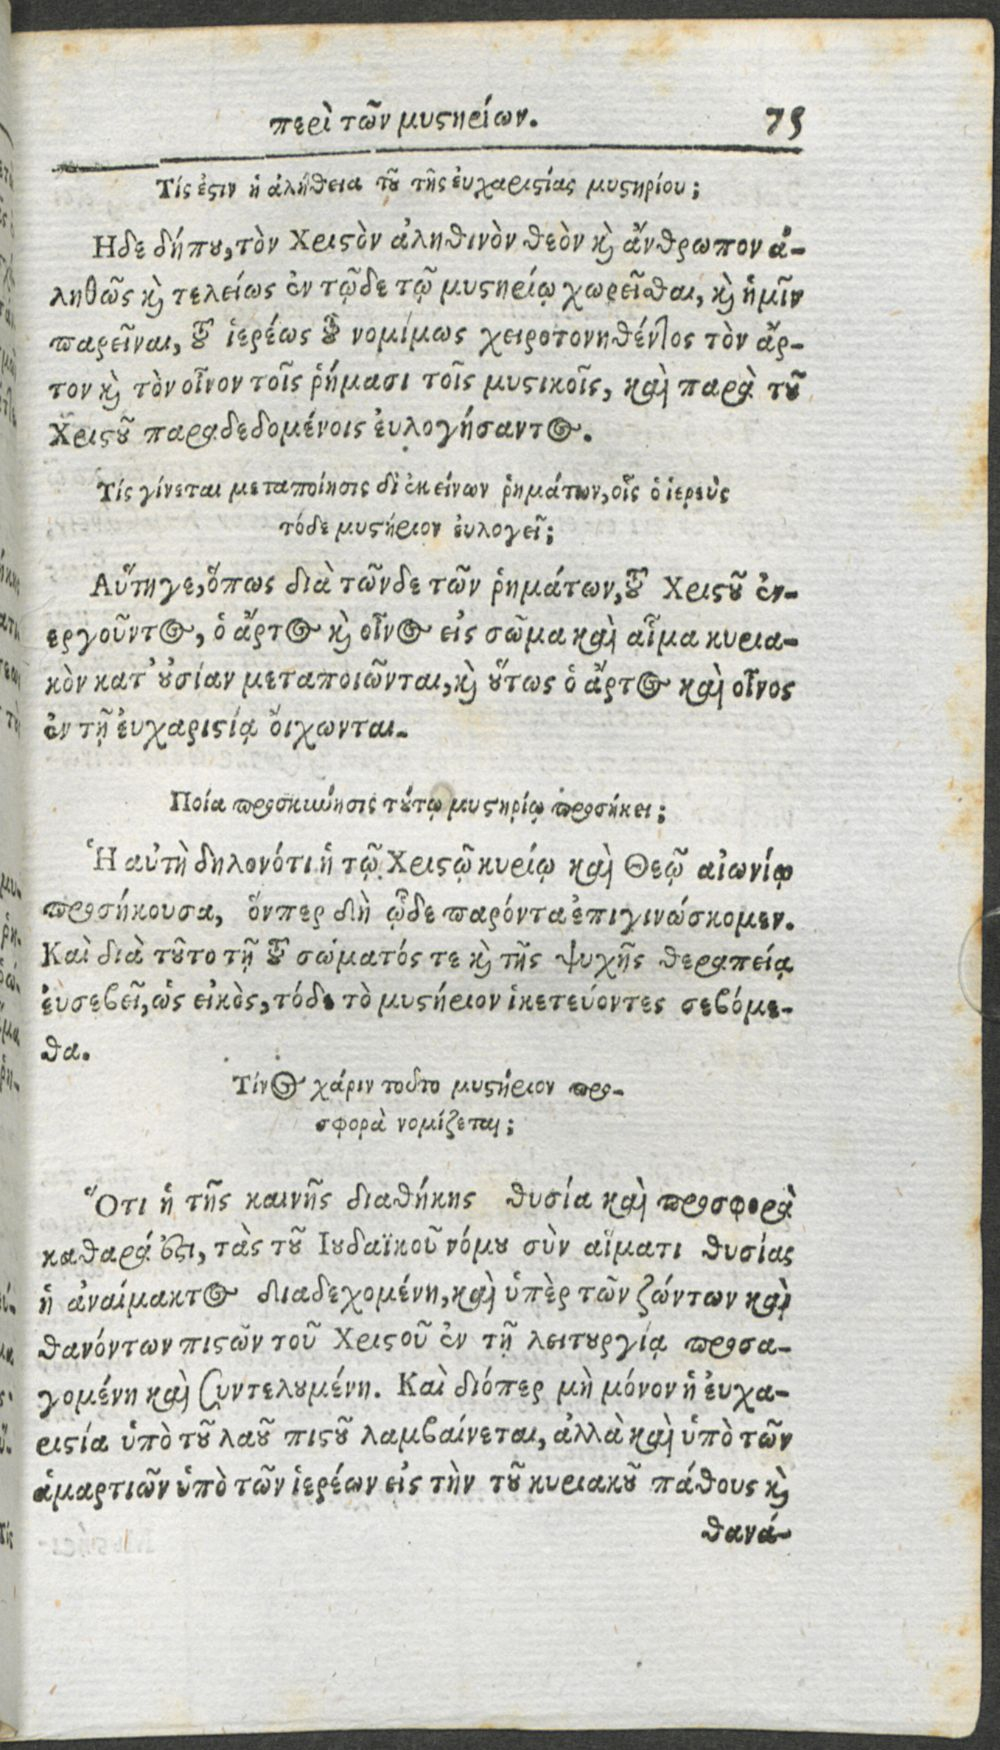 περὶ τῶν μυςηρίων. 75
Τίς ἐςιν ἡ ἀλήθεια τȣ͂ τῆς ἐυχαριςίας μυςηρίου;
Ηδε δήπȣ, τὸν Χριςὸν ἀληθινὸν θεὸν ϗ̀ ἄνθρωπον ἀ-
ληθῶς ϗ̀ τελείως ἐν τῷδε τῷ μυςηρίῳ χωρεῖσθαι, ϗ̀ ἡμῖν
παρεῖναι, τȣ͂ ἱερέως τȣ͂ νομίμως χειροτονηθέντος τὸν ἄρ-
τον ϗ̀ τὸν οἶνον τοῖς ῥήμασι τοῖς μυςικοῖς, καὶ παρὰ τȣ͂
Χριςȣ͂ παραδεδομένοις ἐυλογήσαντος.
Τίς γίνεται μεταποίησις δι' ἐκείνων ῥημάτων, οἷς ὁ ἱερεὺς
τόδε μυςήριον ἐυλογεῖ;
Αὕτηγε, ὅπως διὰ τῶνδε τῶν ῥημάτων, τȣ͂ Χριςȣ͂ ἐν-
εργοῦντος, ὁ ἄρτος ϗ̀ οἶνος εἰς σῶμα καὶ αἷμα κυρια-
κὸν κατ' ȣ̓σίαν μεταποιῶνται, ϗ̀ ȣ̔́τως ὁ ἄρτος καὶ οἶνος
ἐν τῇ ἐυχαριςίᾳ ὄιχωνται.
Ποία προσκύνησις τȣ́τῳ μυςηρίῳ προσήκει;
Ἡ αὐτὴ δηλονότι ἡ τῷ Χριςῷ κυρίῳ καὶ Θεῷ αἰωνίῳ
προσήκουσα, ὅνπερ δὴ ᾧδε παρόντα ἐπιγινώσκομεν.
Καὶ διὰ τȣ͂το τῇ τȣ͂ σώματός τε ϗ̀ τῆς ψυχῆς θεραπείᾳ
ἐυσεβεῖ, ὡς εἰκὸς, τόδε τὸ μυςήριον ἱκετεύοντες σεβόμε-
θα.
Τίνος χάριν τοῦτο μυςήριον προ-
σφορὰ νομίζεται;
Ὅτι ἡ τῆς καινῆς διαθήκης θυσία καὶ προσφορὰ
καθαρά ἐςι, τὰς τȣ͂ Ιȣδαϊκοῦ νόμȣ σὺν αἵματι θυσίας
ἡ ἀναίμακτος διαδεχομένη, καὶ ὑπὲρ τῶν ζώντων καὶ
θανόντων πιςῶν τοῦ Χριςοῦ ἐν τῇ λειτȣργίᾳ προσα-
γομένη καὶ συντελȣμένη. Καὶ διόπερ μὴ μόνον ἡ ἐυχα-
ριςία ὑπὸ τȣ͂ λαȣ͂ πιςȣ͂ λαμβαίνεται, ἀλλὰ καὶ ὑπὸ τῶν
ἁμαρτιῶν ὑπὸ τῶν ἱερέων εἰς τὴν τȣ͂ κυριακȣ͂ πάθους ϗ̀
θανά-